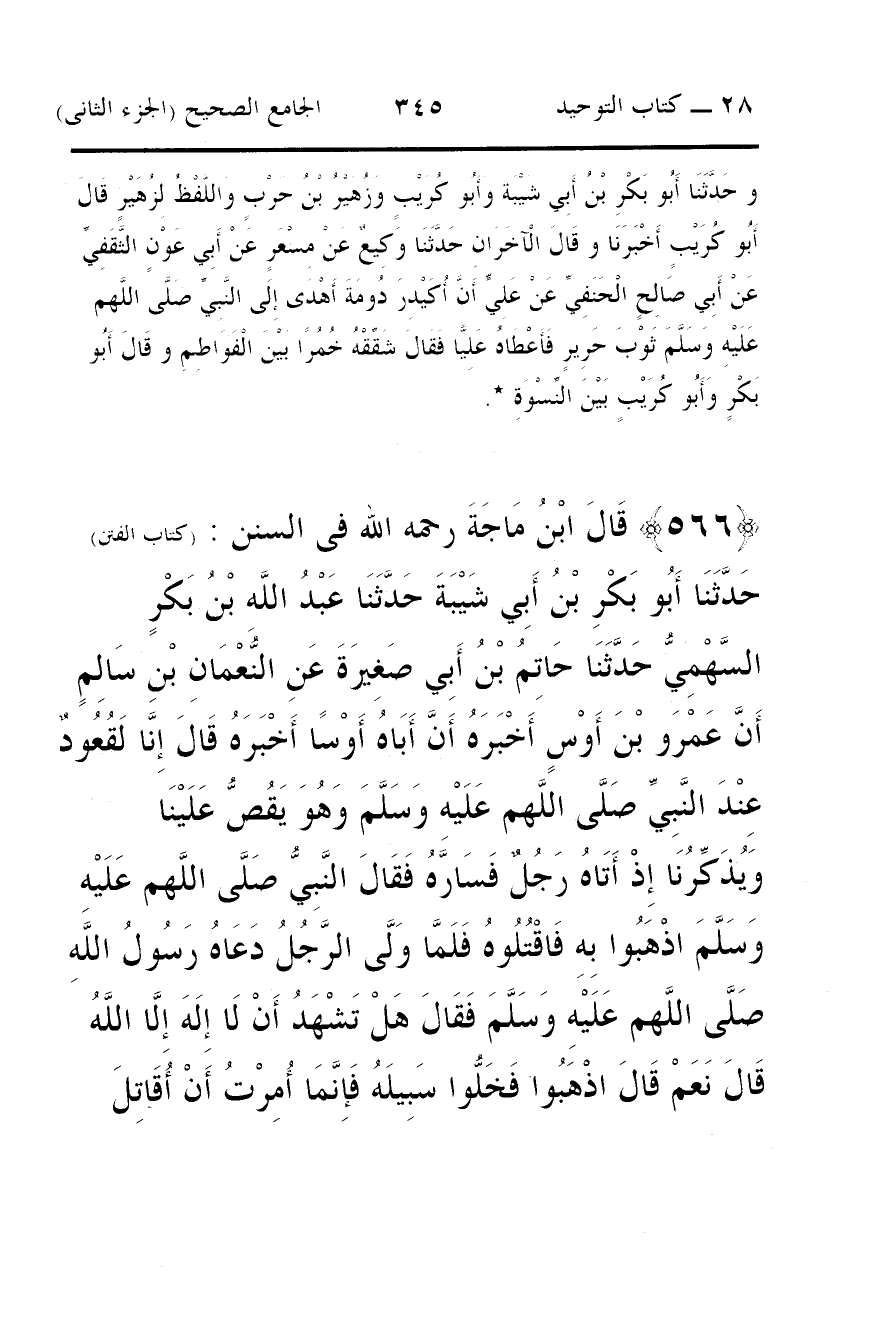 ٢٨ ــ كتاب التوحيد ٣٤٥ الجامع الصحيح (الجزء الثانى)
و حَدَّثَنَا أَبُو بَكْرِ بْنُ أَبِي شَيْبَةَ وَأَبُو كُرَيْبٍ وَزُهَيْرُ بْنُ حَرْبٍ وَاللَّفْظُ لِزُهَيْرٍ قَالَ
أَبُو كُرَيْبٍ أَخْبَرَنَا و قَالَ الْآخَرَانِ حَدَّثَنَا وَكِيعٌ عَنْ مِسْعَرٍ عَنْ أَبِي عَوْنٍ الثَّقَفِيِّ
عَنْ أَبِي صَالِحٍ الْحَنَفِيِّ عَنْ عَلِيٍّ أَنَّ أُكَيْدِرَ دُومَةَ أَهْدَى إِلَى النَّبِيِّ صَلَّى اللَّهم
عَلَيْهِ وَسَلَّمَ ثَوْبَ حَرِيرٍ فَأَعْطَاهُ عَلِيًّا فَقَالَ شَقِّقْهُ خُمُرًا بَيْنَ الْفَوَاطِمِ و قَالَ أَبُو
بَكْرٍ وَأَبُو كُرَيْبٍ بَيْنَ النِّسْوَةِ *.
﴿٥٦٦﴾ قَالَ ابْنُ مَاجَةَ رحمه الله فى السنن : (كتاب الفتن)
حَدَّثَنَا أَبُو بَكْرِ بْنُ أَبِي شَيْبَةَ حَدَّثَنَا عَبْدُ اللَّهِ بْنُ بَكْرٍ
السَّهْمِيُّ حَدَّثَنَا حَاتِمُ بْنُ أَبِي صَغِيرَةَ عَنِ النُّعْمَانِ بْنِ سَالِمٍ
أَنَّ عَمْرَو بْنَ أَوْسٍ أَخْبَرَهُ أَنَّ أَبَاهُ أَوْسًا أَخْبَرَهُ قَالَ إِنَّا لَقُعُودٌ
عِنْدَ النَّبِيِّ صَلَّى اللَّهم عَلَيْهِ وَسَلَّمَ وَهُوَ يَقُصُّ عَلَيْنَا
وَيُذَكِّرُنَا إِذْ أَتَاهُ رَجُلٌ فَسَارَّهُ فَقَالَ النَّبِيُّ صَلَّى اللَّهم عَلَيْهِ
وَسَلَّمَ اذْهَبُوا بِهِ فَاقْتُلُوهُ فَلَمَّا وَلَّى الرَّجُلُ دَعَاهُ رَسُولُ اللَّهِ
صَلَّى اللَّهم عَلَيْهِ وَسَلَّمَ فَقَالَ هَلْ تَشْهَدُ أَنْ لَا إِلَهَ إِلَّا اللَّهُ
قَالَ نَعَمْ قَالَ اذْهَبُوا فَخَلُّوا سَبِيلَهُ فَإِنَّمَا أُمِرْتُ أَنْ أُقَاتِلَ